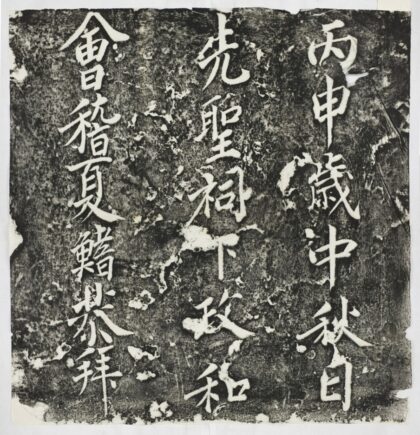 會稽夏鰭恭拜
先聖祠下政和
丙申歲沖秋日